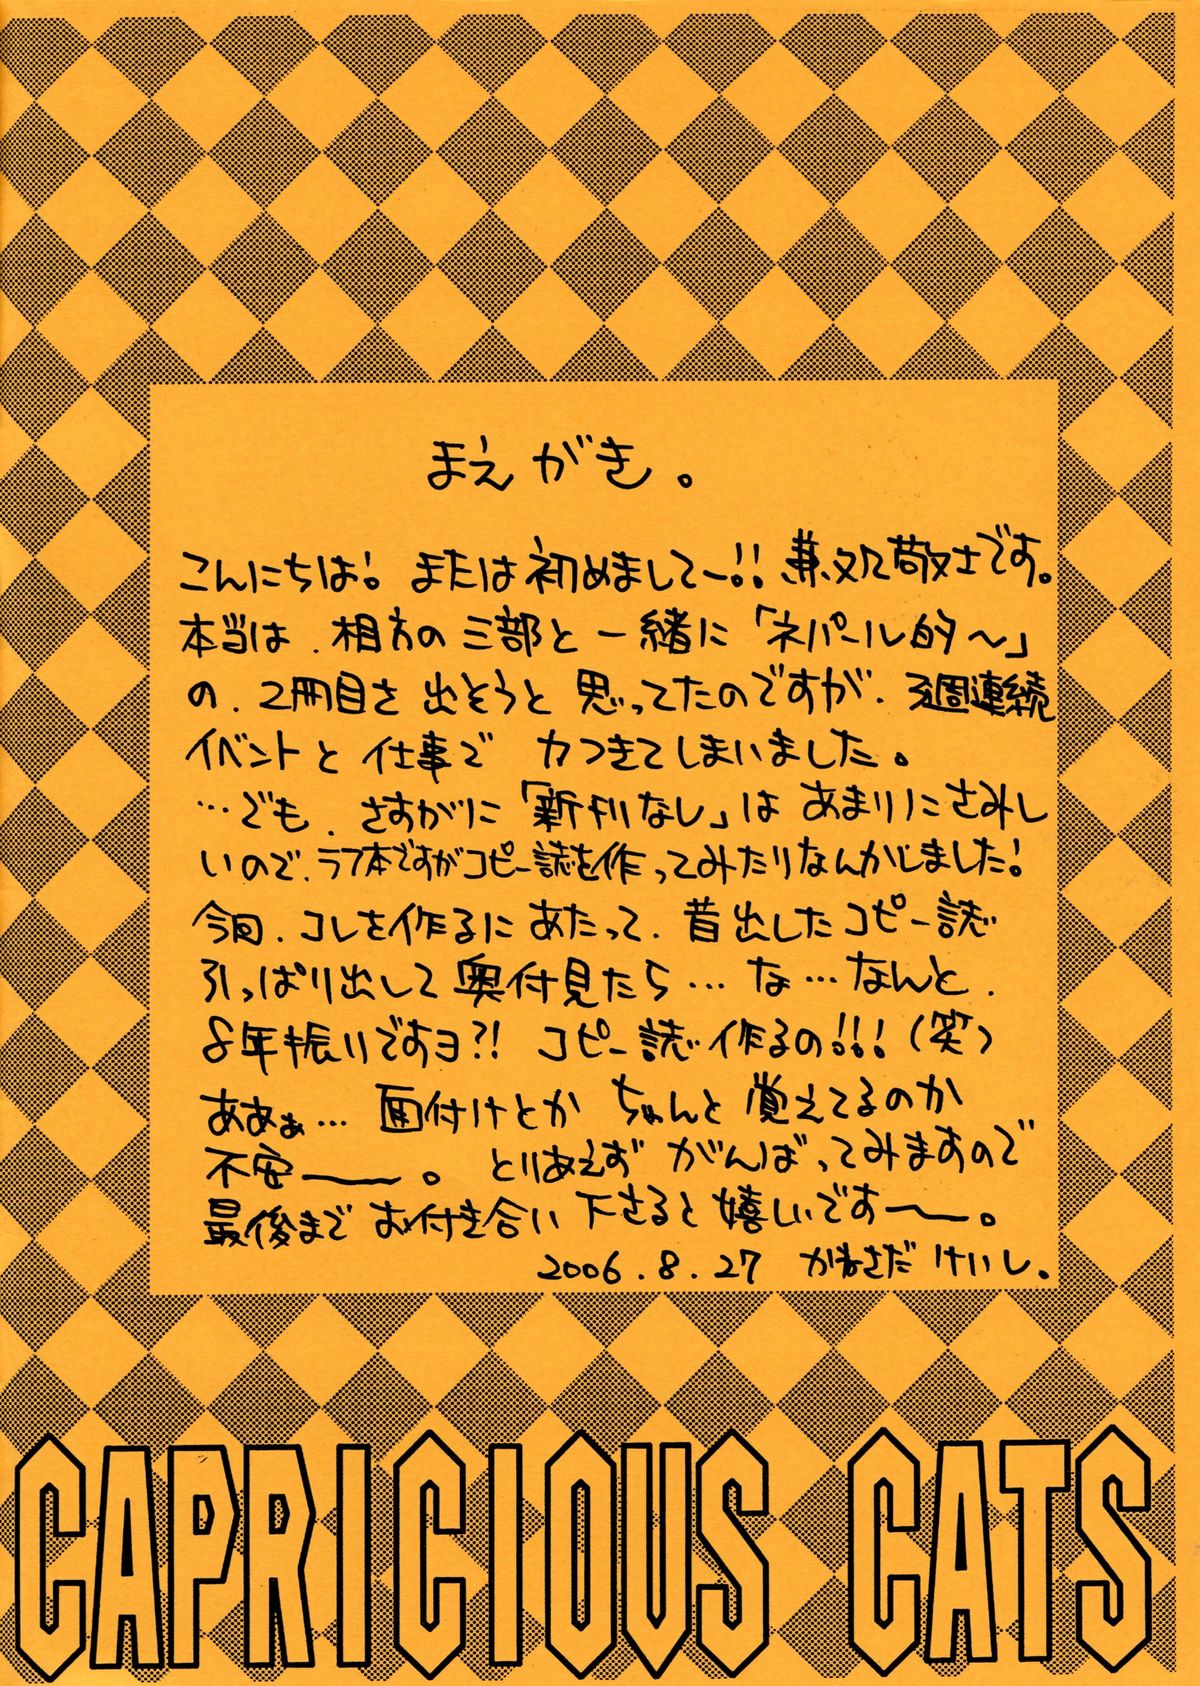 まえがき。
こんにちは!また​は初めましてー!!兼処敬士です。
本当は、相方の三部と一緒に「ネパール的〜」
の、2冊目を出そうと思ってたのですが、3週連続
イベントと仕事で力つきてしまいました。
…でも、さすがに「新刊なし」はあまりにさみし
いので、ラフ本ですがコピー誌を作ってみたりなんかしました!
今回、コレを作るにあたって、昔出したコピー誌
引っぱり出して奥付見たら…な…なんと、
8年振りですヨ?!コピー誌作るの!!!(笑)
ああぁ…面付けとかちゃんと覚えてるのか
不安──。とりあえずがんばってみますので
最後までお付き合い下さると嬉しいです〜。
2006.8.27 かねさだけいし。
CAPRICIOUS CATS